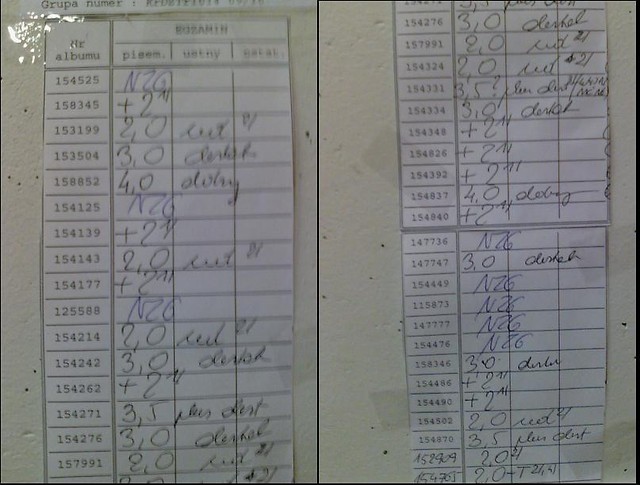 Grupa numer :
EGZAMIN
Nr albumu pisem. ustny ostat.
154525 NZG
158345 +2
153199 2,0 ndt 2)
153504 3,0 dostat
158852 4,0 dobry
154125 NZG
154139 +2
154143 2,0 ndt 2)
154177 +2
125588 NZG
154214 2,0 ndt 2)
154242 3,0 dostat
154262 +2
154271 3,5 plus dost
154276 3,0 dostat
157991 2,0 ndt 2)
2,0 ndt 2)
154271 3,5 plus dost
154276 3,0 dostat
157991 2,0 ndt 2)
154324 2,0 ndt 2)
154331 3,5 plus dost
154334 3,0 dostat
154348 +2
154826 +2
154392 +2
154837 4,0 dobry
154840 +2
147736 NZG
147747 3,0 dostat
154449 NZG
115873 NZG
147777 NZG
154476 NZG
158346 3,0 dostat
154486 +2
154490 +2
154502 2,0 ndt 2)
154870 3,5 plus dost
152909 2,0
154705 2,0